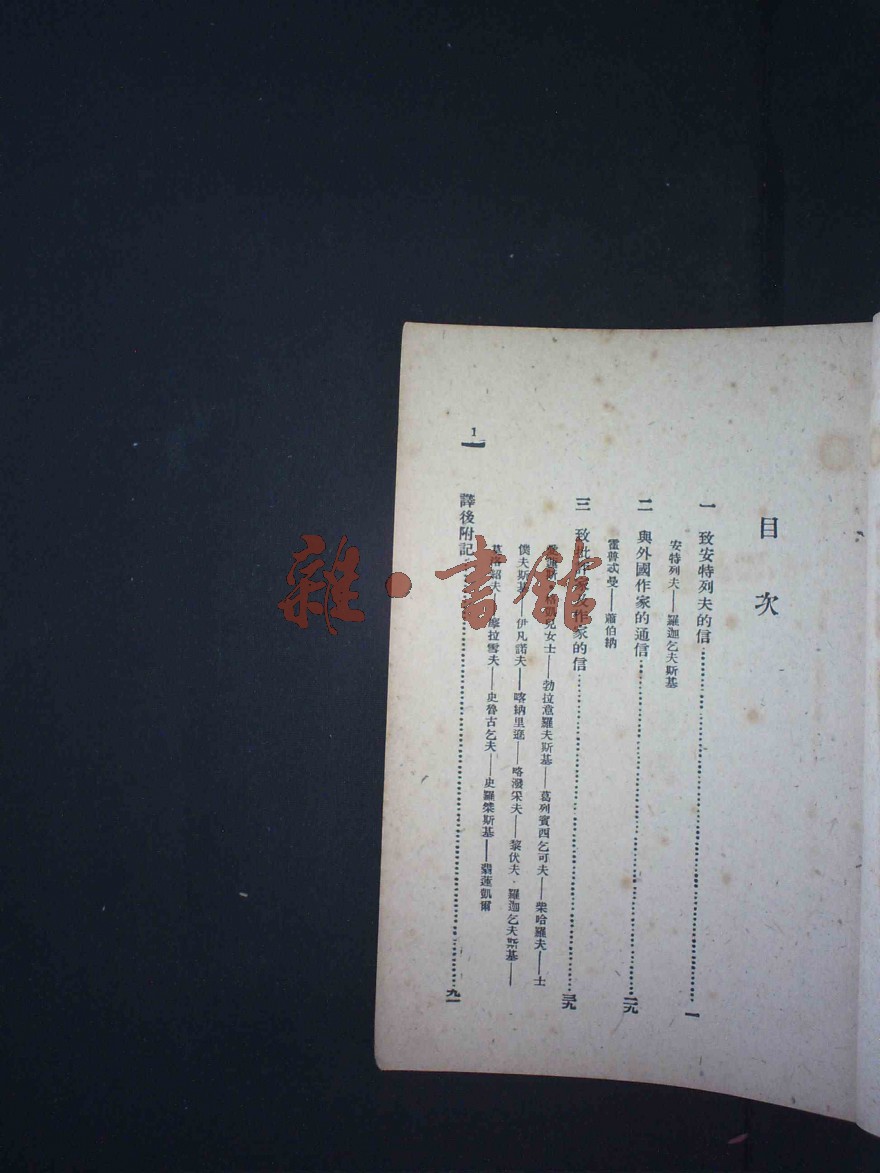 目次
一 致安特列夫的信……一
安特列夫——羅迦乞夫斯基
二 與外國作家的通信……二九
霍普忒曼——蕭伯納
三 致 作家及作家的信……三九
女士——勃拉意羅夫斯基——葛列賓西乞可夫——柴哈羅夫——士
僕夫斯基——伊凡諾夫——喀納里遜——喀潑宋夫——黎伏夫·羅迦乞夫斯基——
夫——摩拉雪夫——史魯古乞夫——史羅 斯基——翡蓮凱爾
譯後附記……九一
1
雜·書館